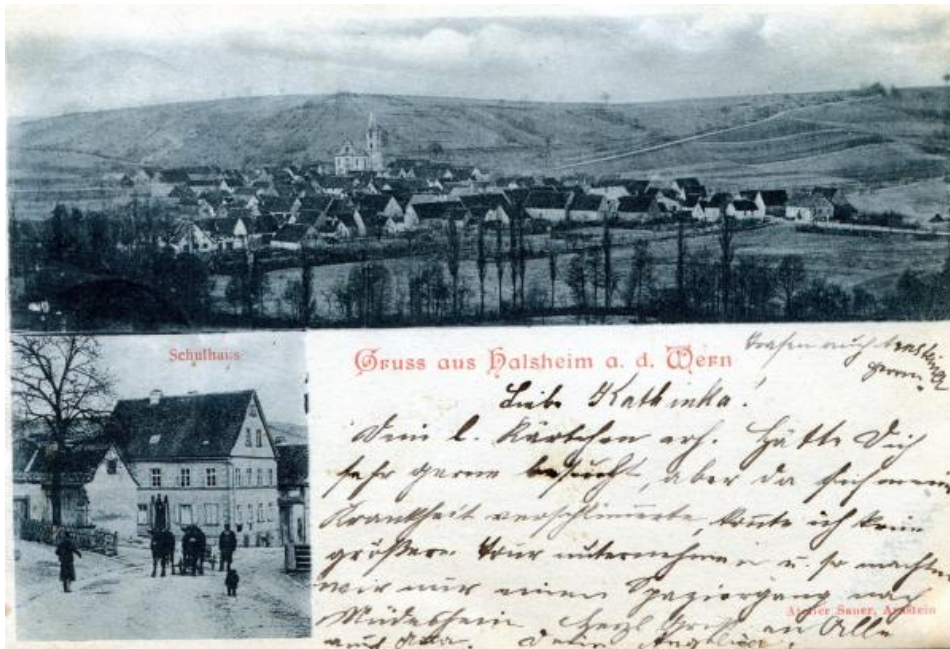 Schulhaus
Gruss aus Halsheim a. d. Wern
Liebe Kathinka!
Dein l. Kärtchen erh. Hätte Dich
sehr gerne besucht, aber da sich meine
Krankheit verschlimmerte, konnte ich keine
größere Tour unternehmen u. so machten
wir nur einen Spaziergang nach
Müdesheim Herzl. Gruß an Alle
auch Deine
Atelier Sauer, Arnstein